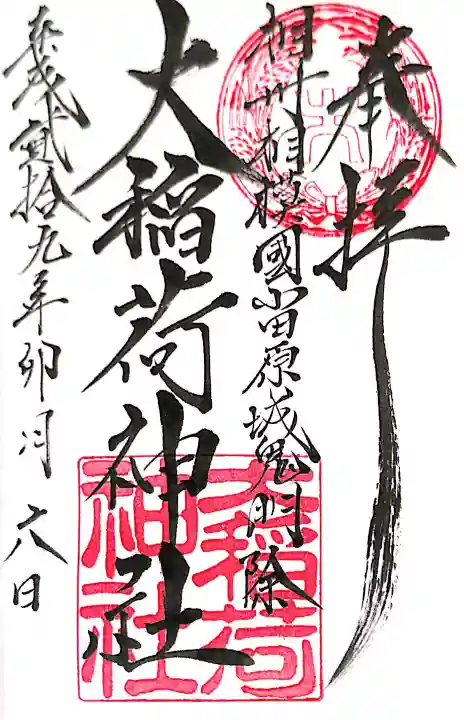 奉拝
相州相模國小田原城鬼門除
大稲荷神社
平成貮拾九年卯月六日
大稲荷
神社